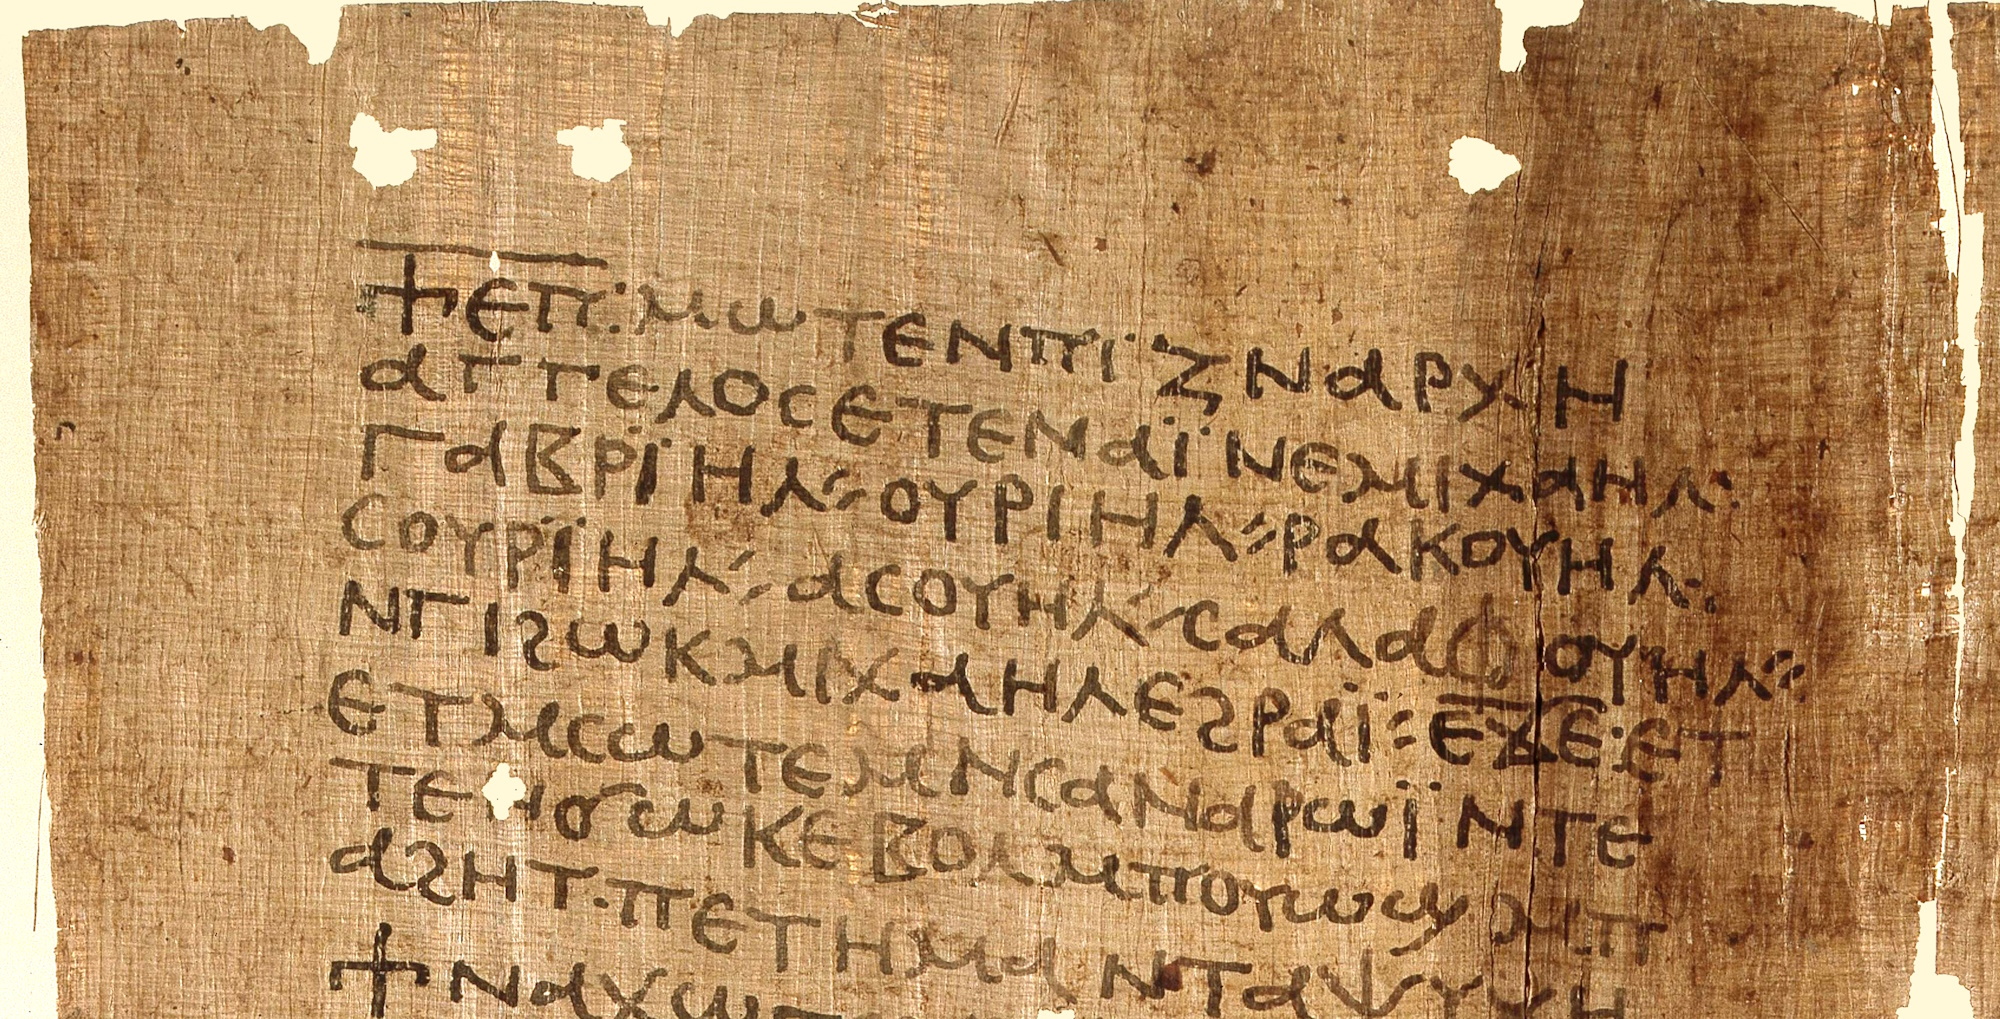 ϯⲉⲡⲓ:ⲙⲱⲧⲉⲛⲡⲓⲍⲛⲁⲣⲭⲏ
ⲁⲅⲅⲉⲗⲟⲥⲉⲧⲉⲛⲁⲓ̈ⲛⲉⲙⲓⲭⲁⲏⲗ·
ⲅⲁⲃⲣⲓ̈ⲏⲗ⸗ⲟⲩⲣⲓⲏⲗ⸗ⲣⲁⲕⲟⲩⲏⲗ·
ⲥⲟⲩⲣⲓ̈ⲏⲗ⸗ⲁⲥⲟⲩⲏⲗ⸗ⲥⲁⲗⲁⲫⲟⲩⲏⲗ⸗
ⲛⲅⲓϩⲱⲕⲙⲓⲭⲁⲏⲗⲉϩⲣⲁⲓ̈⸗ⲉⲩⲉ·ⲉⲧ
ⲉⲧⲙⲥⲱⲧⲉⲙⲛⲥⲁⲛⲁⲣⲱⲓ̈ⲛⲧⲉ
ⲧⲉⲛϭⲱⲕⲉⲃⲟⲗⲙⲡⲟⲩⲱϣⲙⲡ
ⲁϩⲏⲧ·ⲡⲉⲧⲏⲙⲁⲛⲧⲁⲯⲩⲭⲏ
ϯⲛⲁⲭⲱ